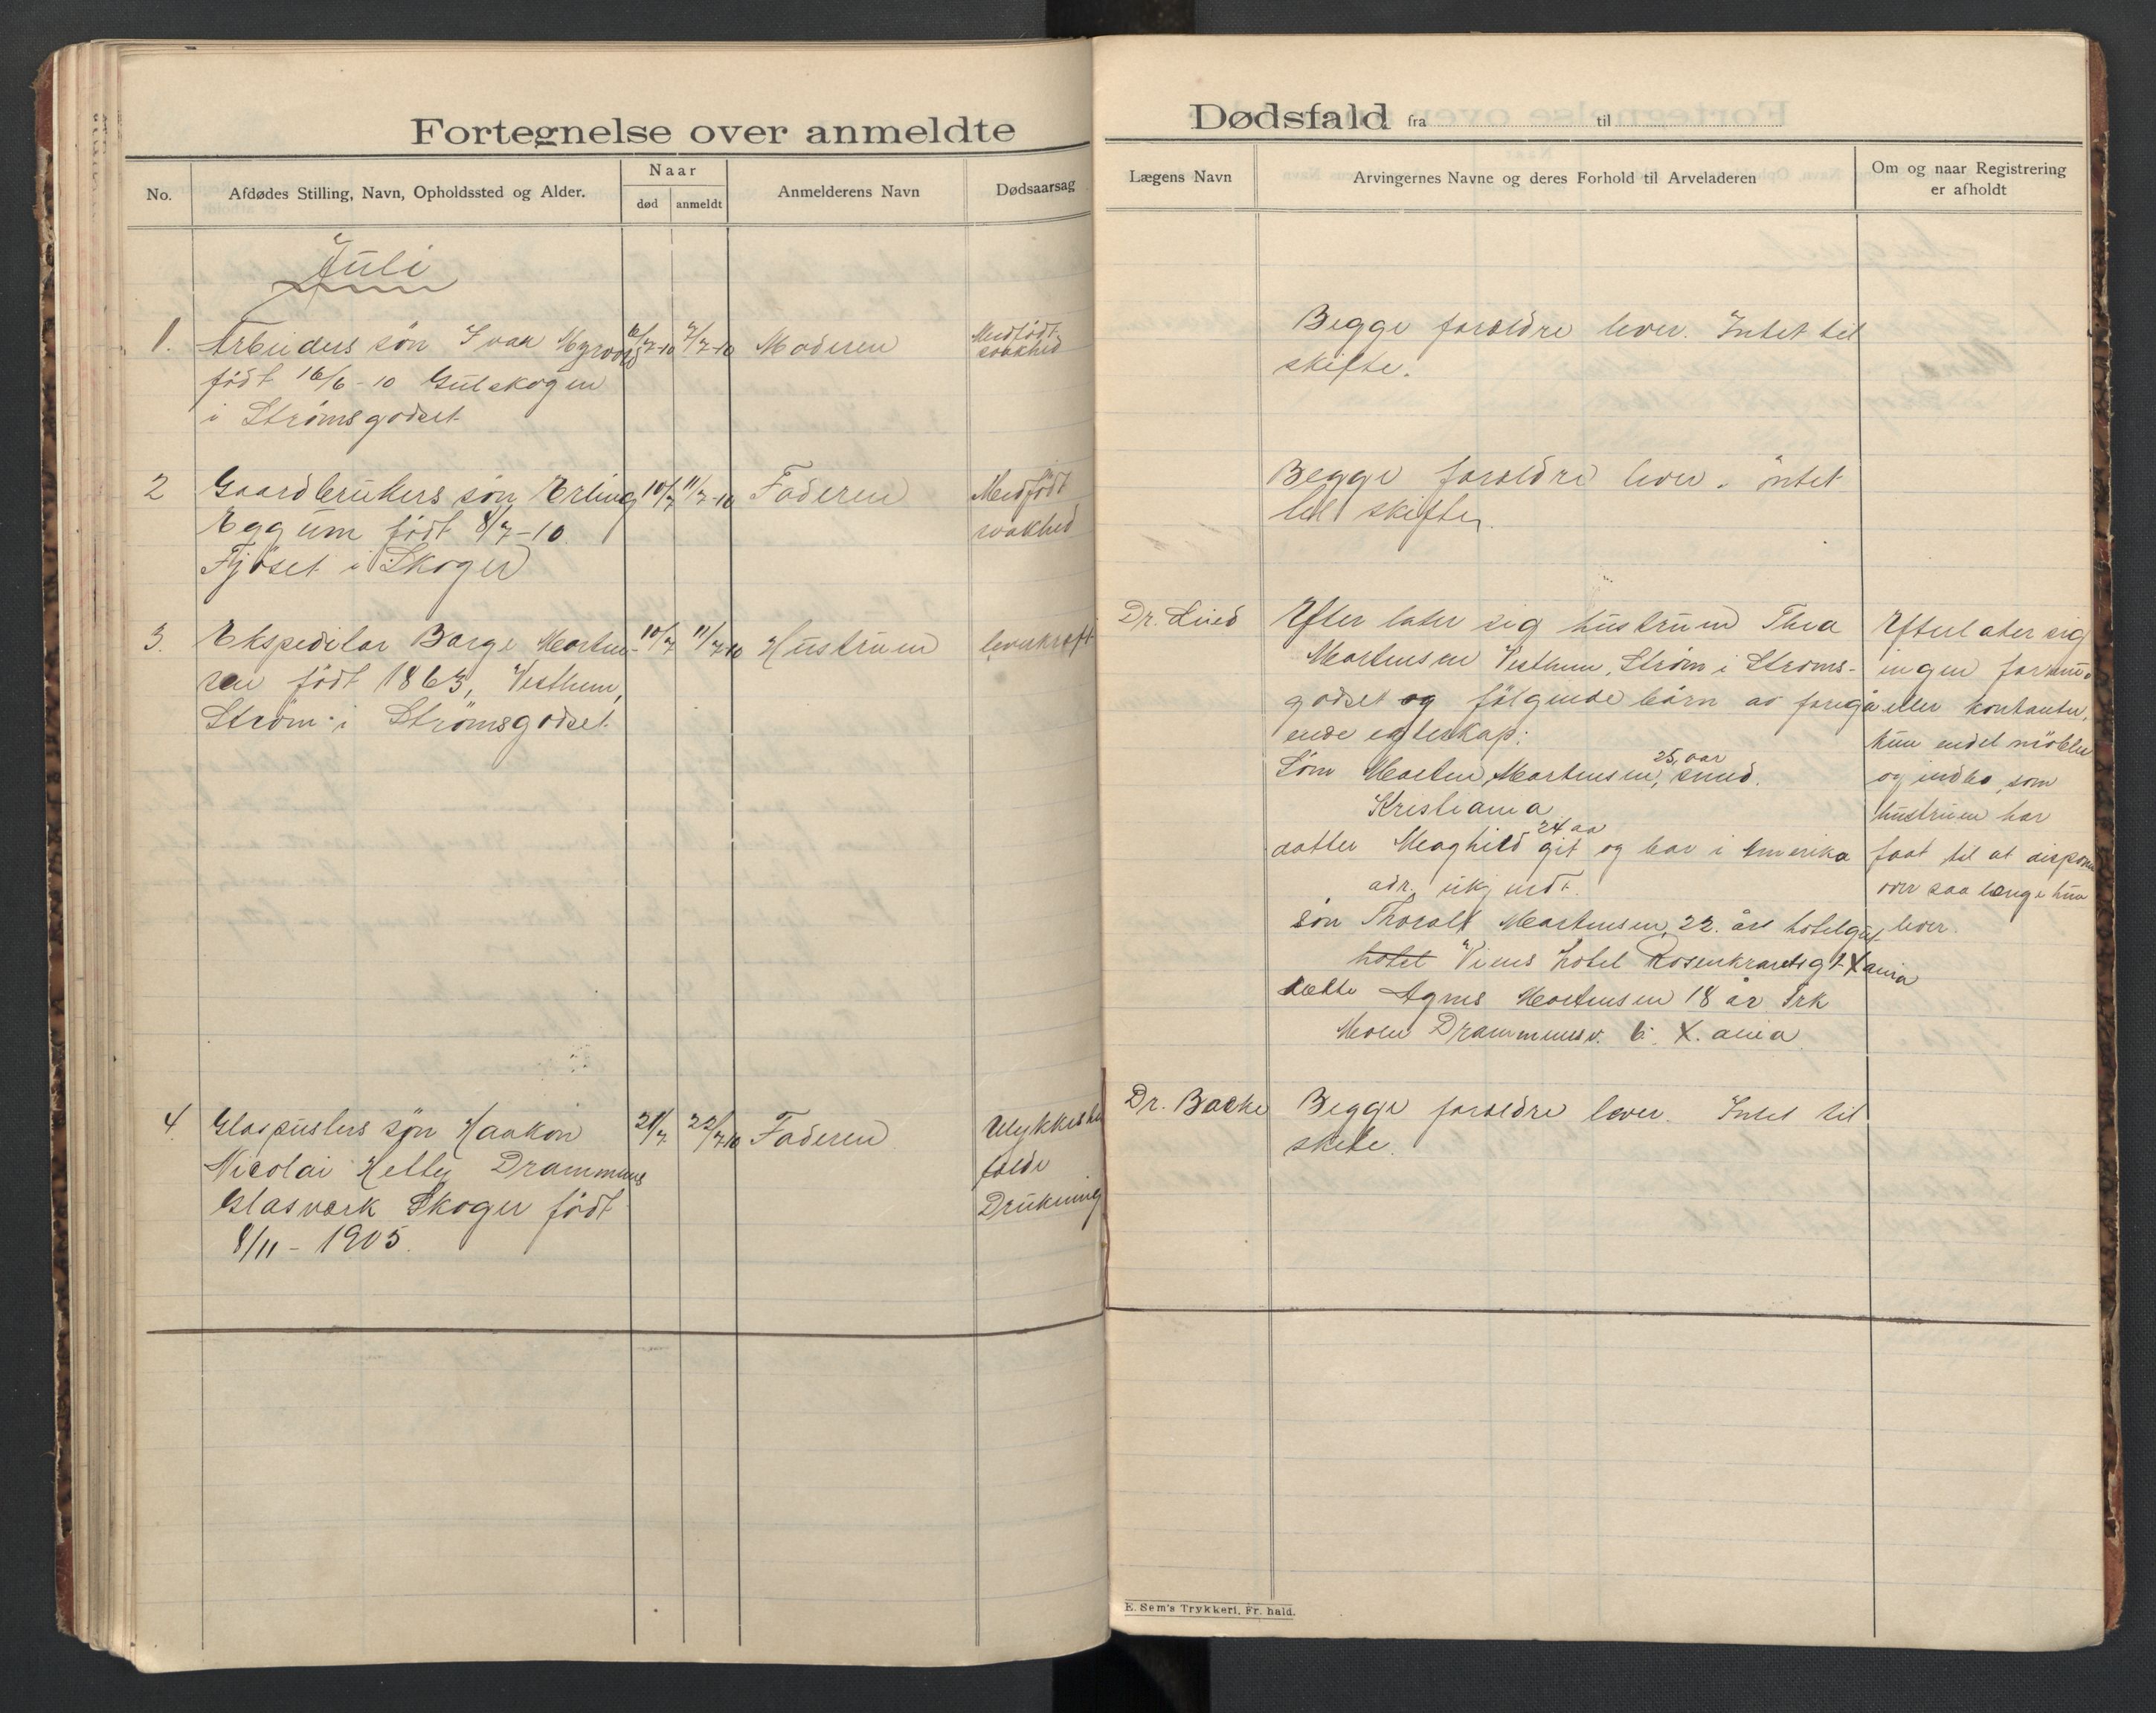 Fortegnelse over anmeldte
No.
Afdødes Stilling, Navn, Opholdssted og Alder.
Naar
død
anmeldt
Anmelderens Navn
Dødsaarsag
Juli
1. Arbeiders søn Ivar Myrvold 7/7-10 Moderen Medfødt
svakhed
født 16/6-10 Gulskogen
i Strømsgodset
2 Gaardbrukers søn Erling 10/7 11/7-10 Faderen Medfødt
Eggum født 8/7-10. svakhed
Fjøset i Skoger
3. Ekspeditør Borge Marten- 10/7 11/7-10 Hustruen leverkræft
sen født 1863, Vesthum,
Strøm i Strømsgodset.
4. Glaspusters søn Haakon 21/7 22/7-10 Faderen Ulykkestil
Nicolai Helly Drammens fælde
Glasværk Skoger født Drukning
8/11-1905.
Dødsfald fra til
Lægens Navn
Arvingernes Navne og deres Forhold til Arveladeren
Om og naar Registrering
er afholdt
Begge forældre lever. Intet til
skifte.
Begge forældre lever. intet
til skifte.
Dr. Efter later sig hustruen Thea
Martensen Vesthum, Strøm i Strøms-
godset og følgende børn av foregå
ende egteskap:
Søn Marten Martensen, 25, aar smed.
Kristiania
datter Maghild 24 aa git og bor i Amerika
adr. ukjendt.
søn Thoralf Martensen, 22. års hotelgut
hotel Viens hotel Rosenkrantsgt Xania
datte Agnes Martensen 18 år Frk
Moen Drammensv. 6. X.ania
Efterlater sig
ingen formue
eller kontanter,
kun endel møbler
og indbo, som
hustruen har
faat til at disponere
over saa længe hun
lever.
Dr. Backe Begge forældre lever. Intet til
skifte.
E. Sem's Trykkeri, Fr.hald.